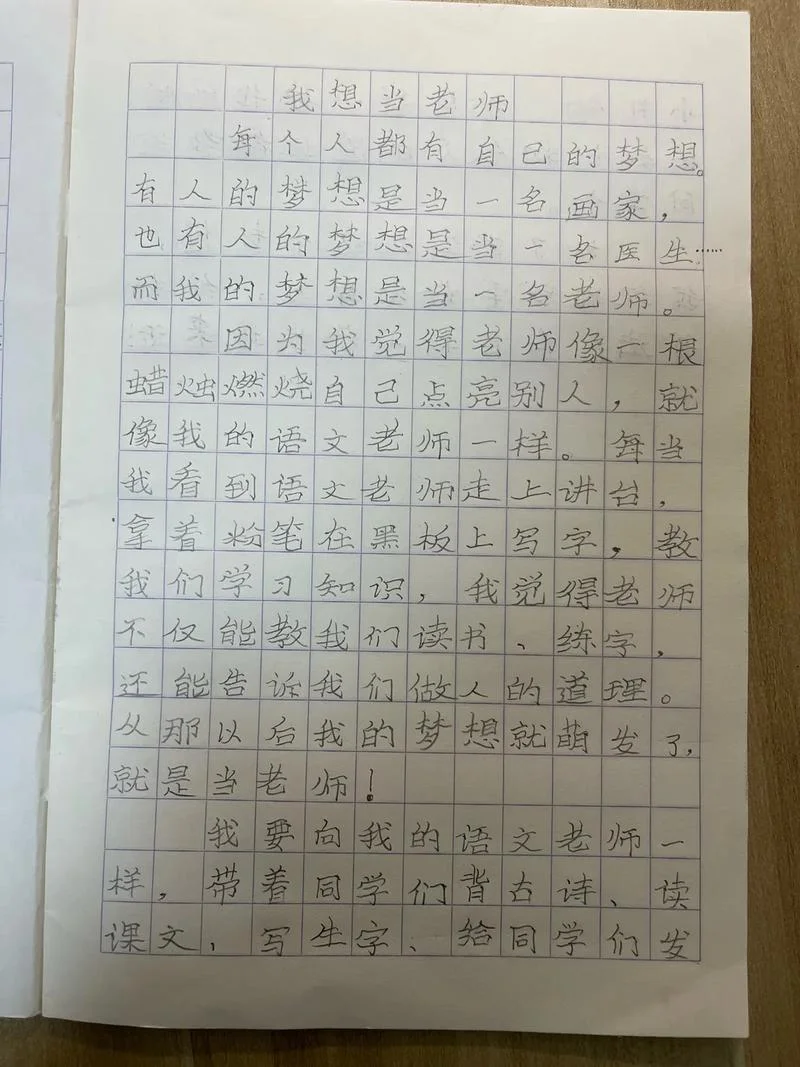 我想当老师
每个人都有自己的梦想。
有人的梦想是当一名画家，
也有人的梦想是当一名医生……
而我的梦想是当一名老师。
因为我觉得老师像一根
蜡烛燃烧自己点亮别人，就
像我的语文老师一样。每当
我看到语文老师走上讲台，
拿着粉笔在黑板上写字，教
我们学习知识，我觉得老师
不仅能教我们读书、练字，
还能告诉我们做人的道理。
从那以后我的梦想就萌发了，
就是当老师！
我要向我的语文老师一
样，带着同学们背古诗、读
课文、写生字、给同学们发